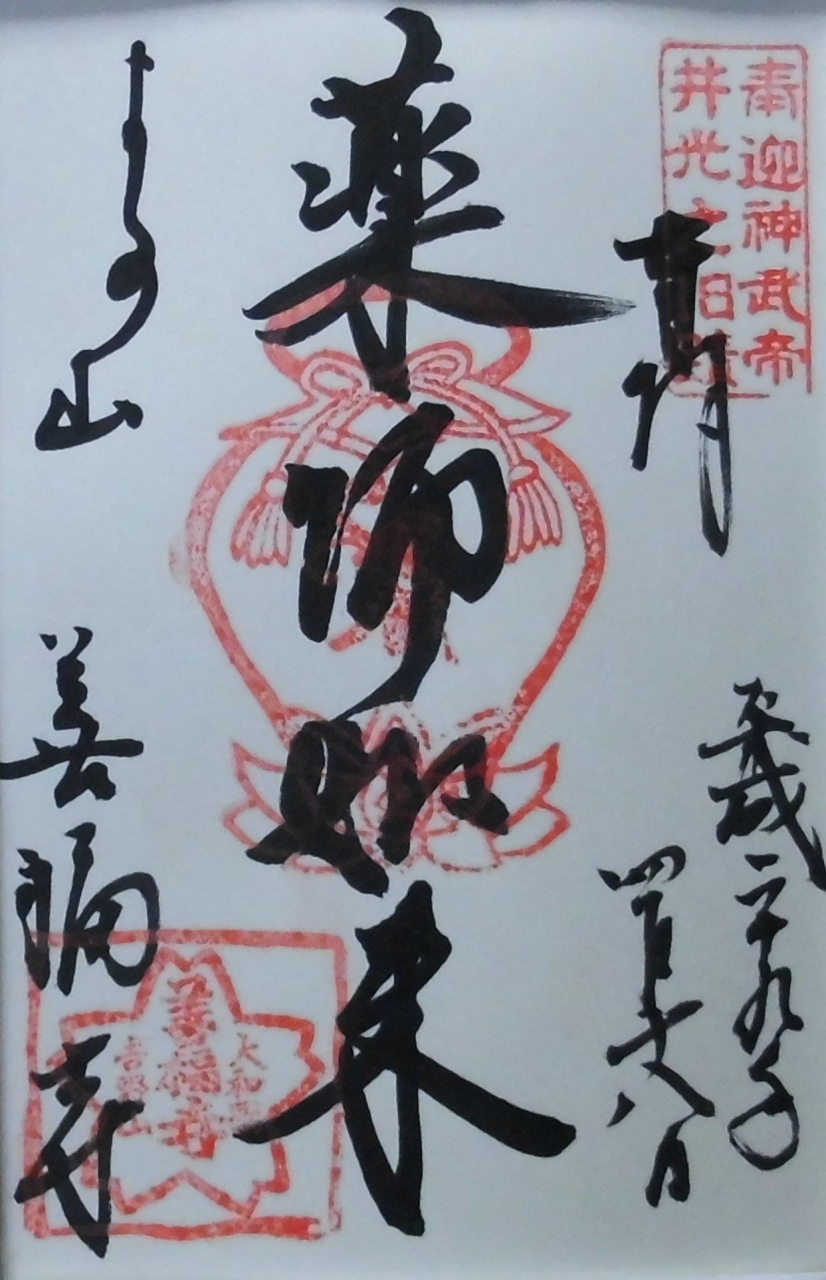 奉迎神武帝
井光之旧蹟
奉拝
平成二十九年
四月 八日
薬師如来
よしの山
善福寺
大和
善福寺
吉野山